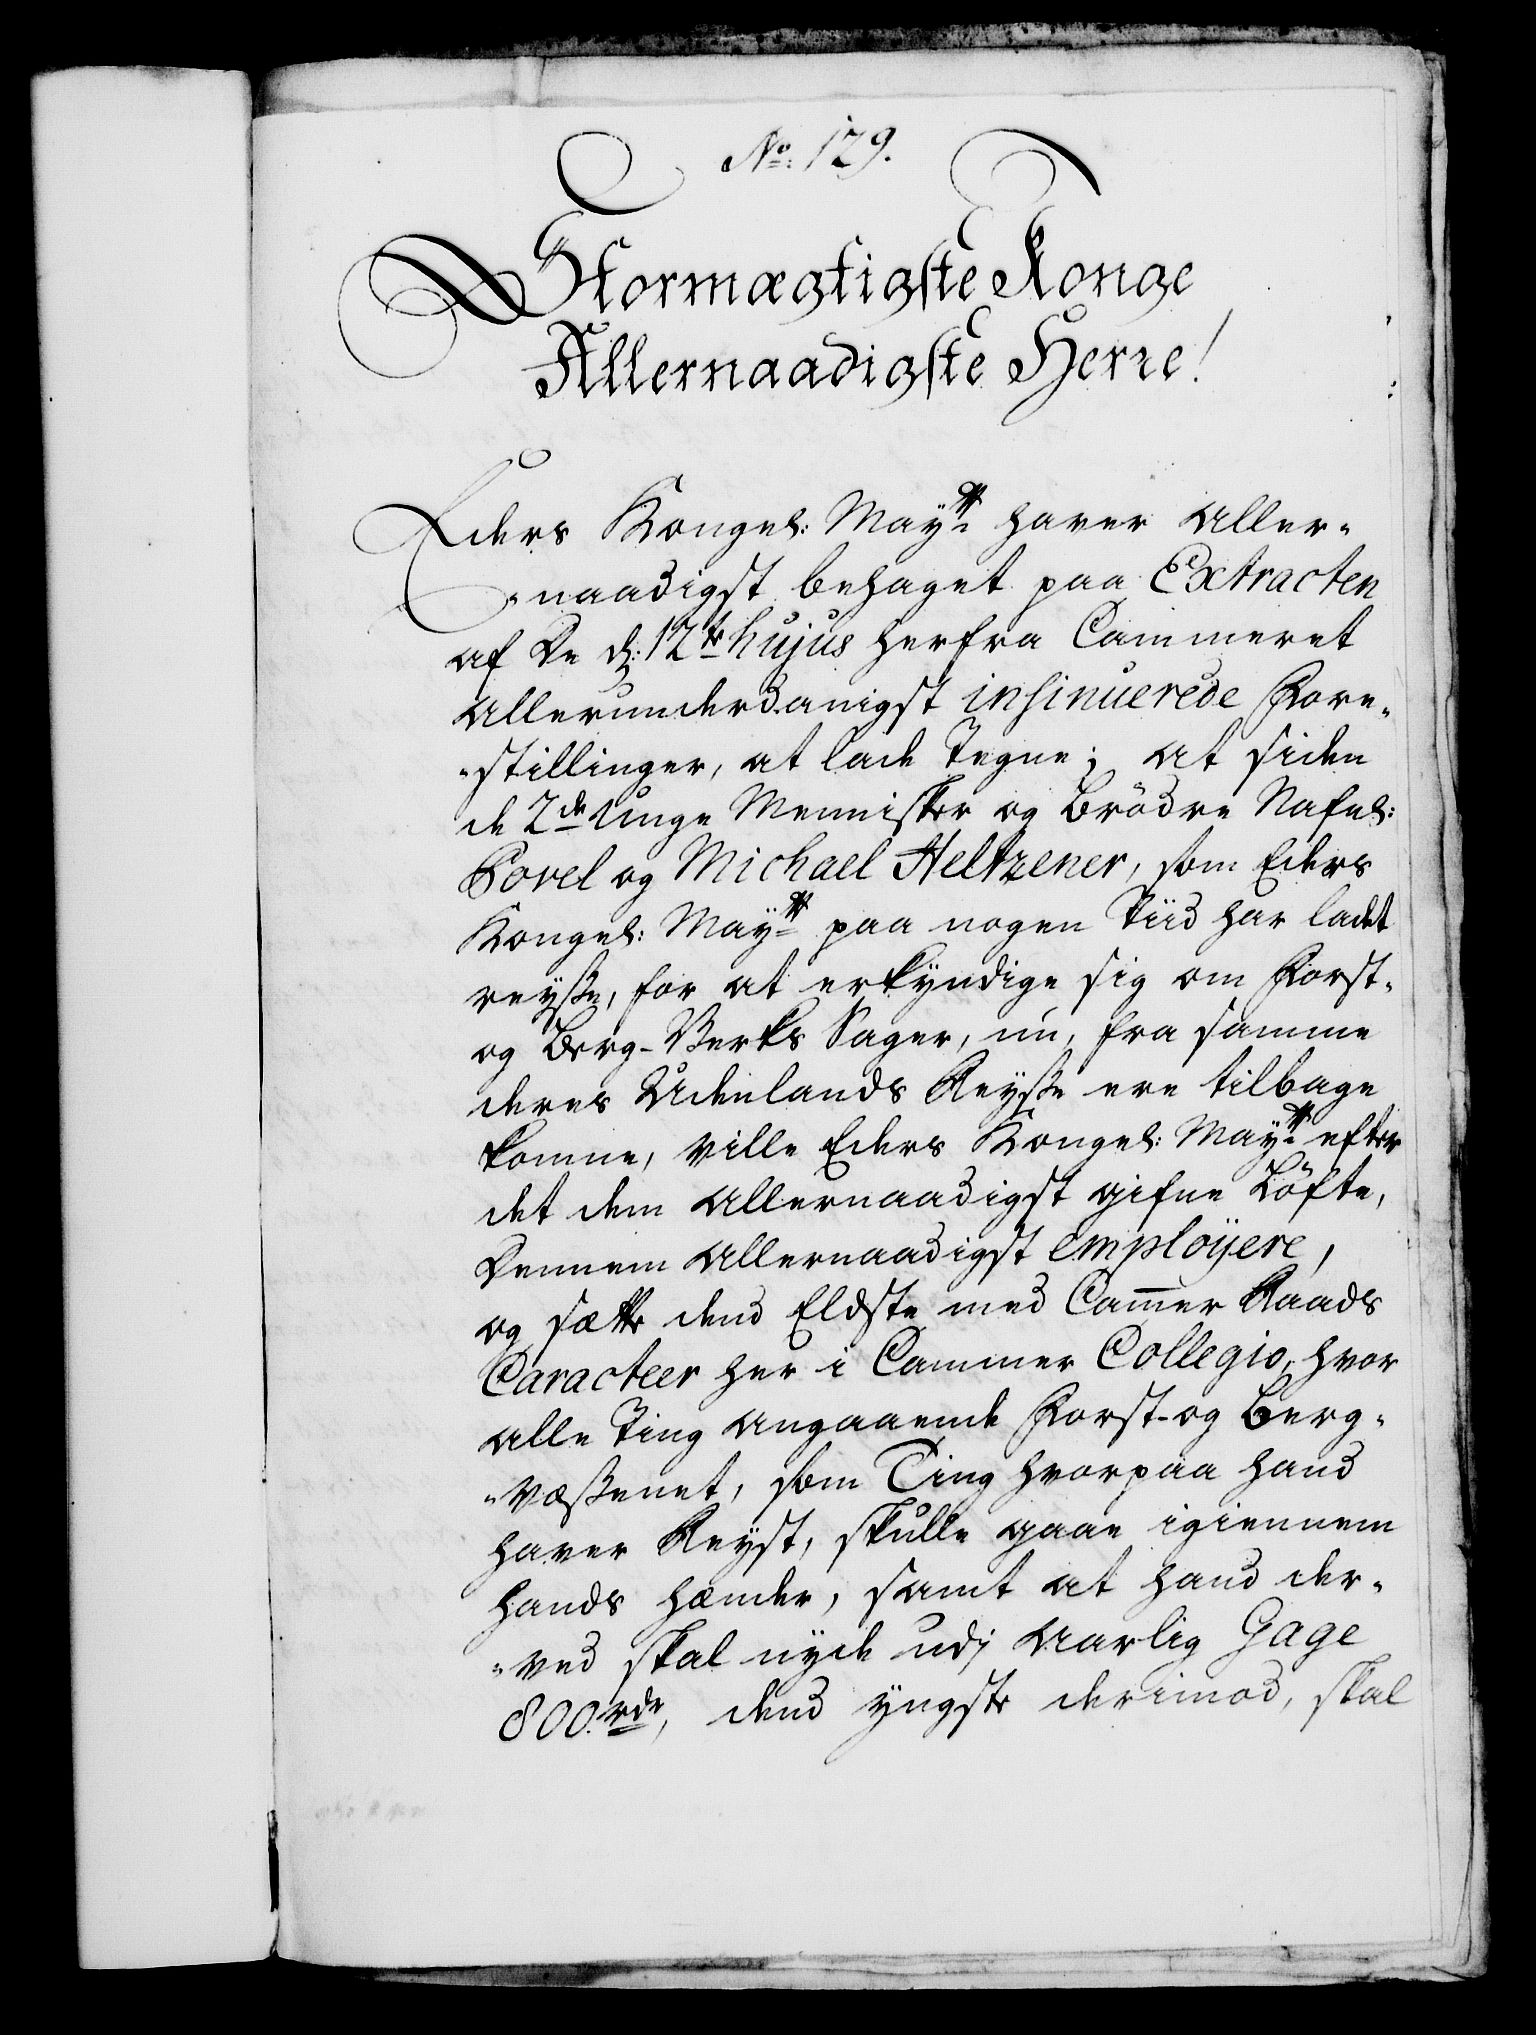 No: 129.
Stormægtigste Konge
Allernaadigste Herre!
Eders Kongel: Mayᵗᵗ haver Aller-
naadigst behaget paa Extracten
af De d: 12te hujus herfra Cammeret
Allerunderdanigst insinuerede Fore-
stillinger, at lade Tegne; at siden
de 2de unge Mennisker og Brödre Nafnl:
Povel og Michael Heltzener, som Eders
Kongel: Mayᵗᵗ paa nogen Tiid har ladet
reyße, for at erkyndige sig om Forst-
og Berg-Verks Sager, nu, fra samme
deres Udenlands Reyße ere tilbage
komne, ville Eders Kongel: Mayᵗᵗ efter
det dem Allernaadigst gifne Löfte,
Dennem Allernaadigst employere,
og sætte dend Eldste med Cammer Raads
Caracteer her i Cammer Collegio, hvor
alle Ting angaaende Forst- og Berg-
væßenet, som Ting hvorpaa hand
haver Reyst, skulle gaae igiennem
hands hænder, samt at hand der-
ved skal nyde udj Aarlig Gage
800 rdr, dend yngste derimod, skal